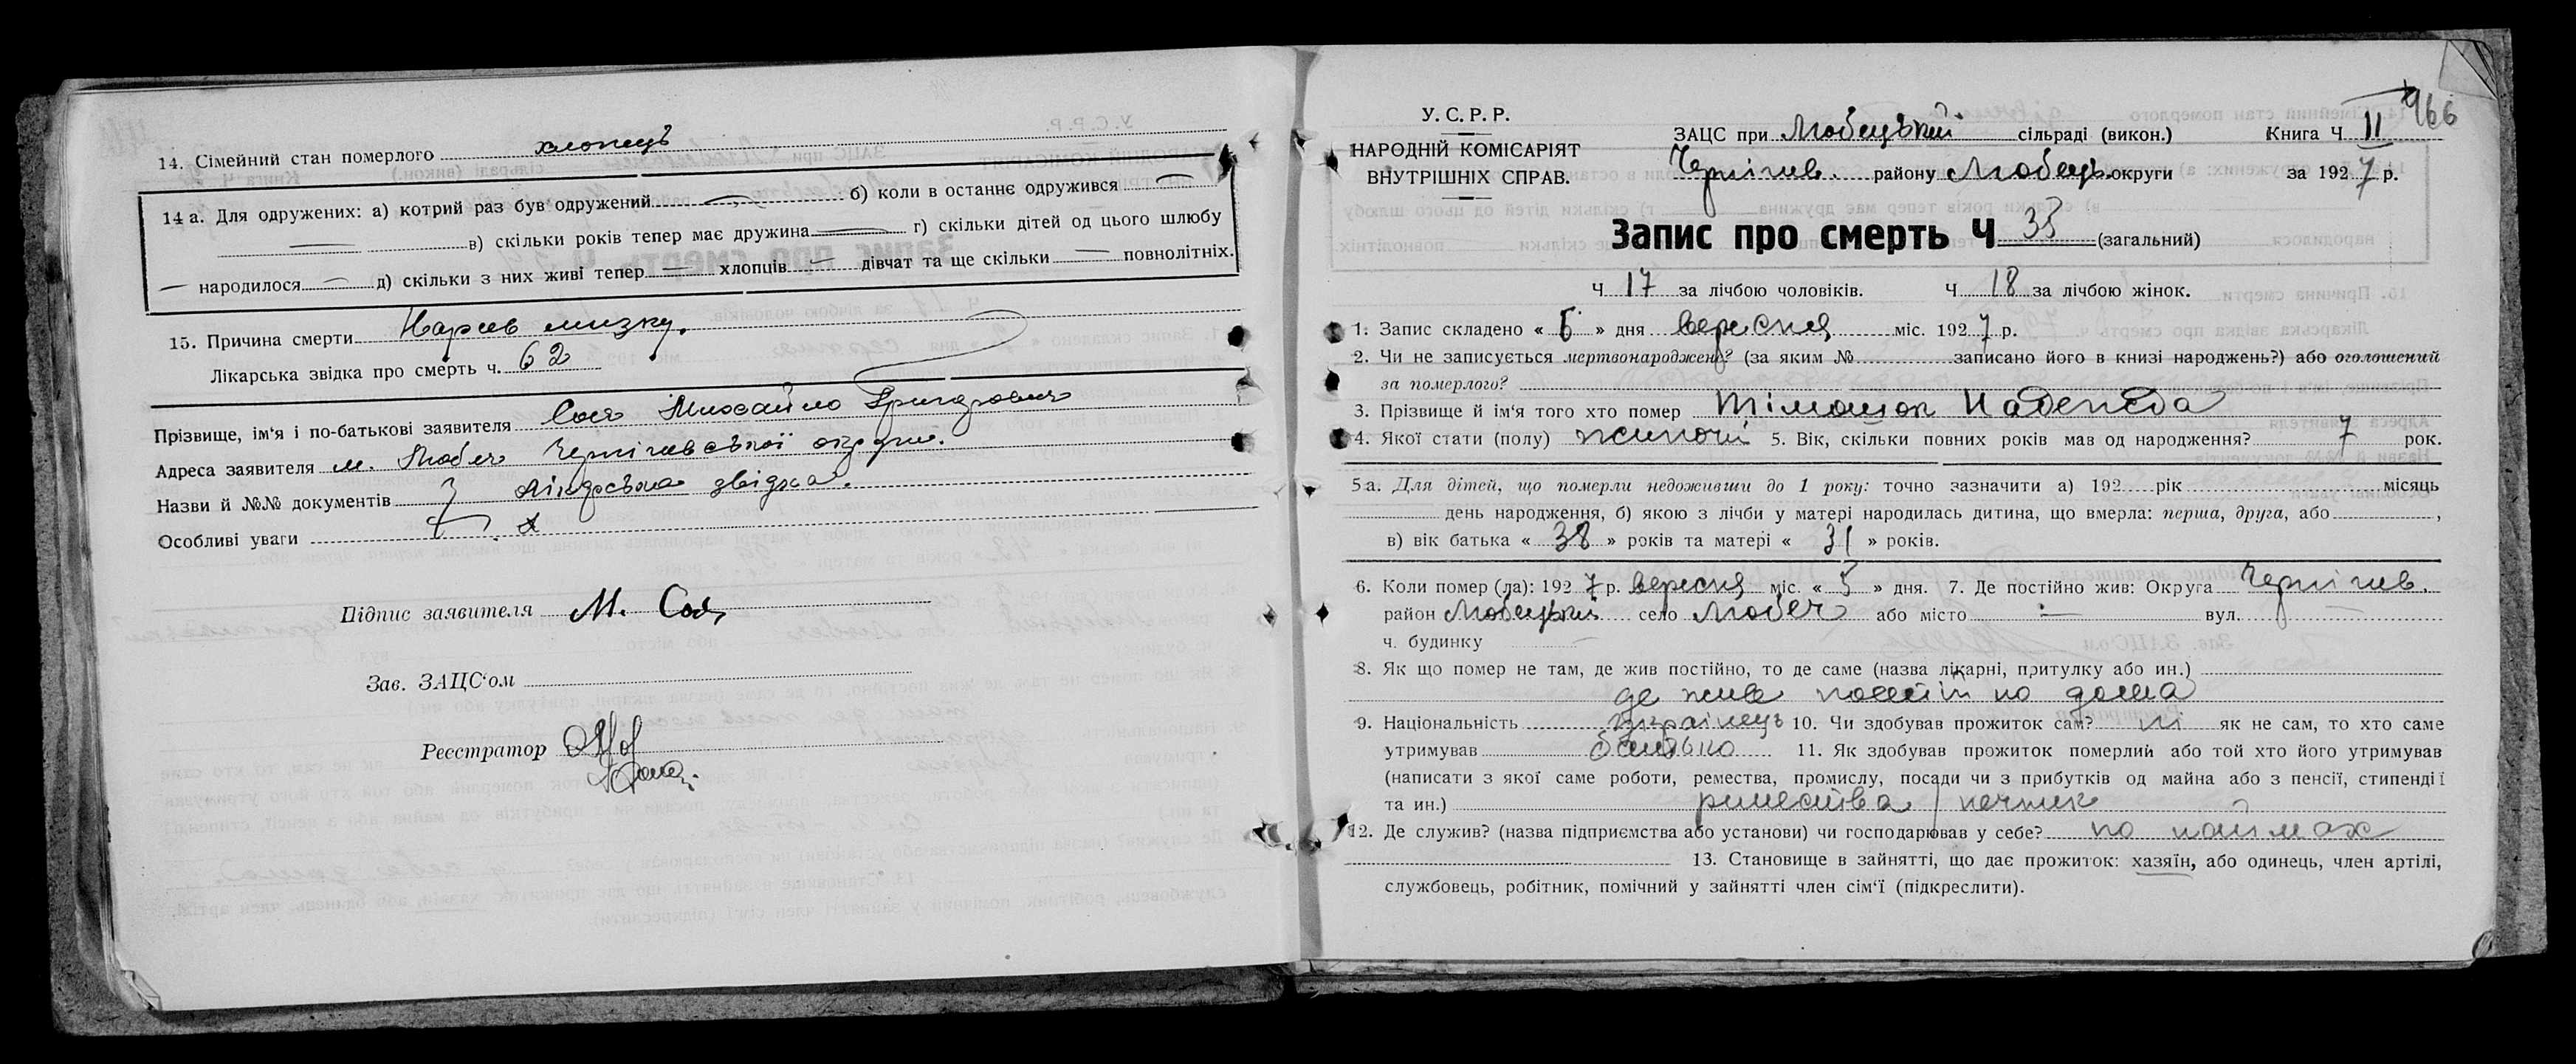 14. Сімейний стан померлого хлопець
14 а. Для одружених: а) котрий раз був одружений — б) коли в останнє одружився —
— в) скільки років тепер має дружина — г) скільки дітей од цього шлюбу
— народилося — д) скільки з них живі тепер — хлопців — дівчат та ще скільки — повнолітніх.
15. Причина смерти Нарив мизку.
Лікарська звідка про смерть ч. 62
Прізвище, ім'я і по-батькові заявителя Михайло Григорович
Адреса заявителя м. Любеч Чернігивської округи.
Назви й №№ документів лікарська звідка.
Особливі уваги
Підпис заявителя М.
Зав. ЗАЦС'ом
Реєстратор
966
У. С. Р. Р.
НАРОДНІЙ КОМІСАРІЯТ
ВНУТРІШНІХ СПРАВ.
ЗАЦС при Любецький сільраді (викон.) Книга Ч. II
Чернігив. району Любець округи за 1927 р.
Запис про смерть Ч 35 (загальний)
Ч 17 за лічбою чоловіків. Ч 18 за лічбою жінок.
1. Запис складено « 6 » дня вересня міс. 1927 р.
2. Чи не записується мертвонароджене? (за яким № записано його в книзі народжень?) або оголошений
за померлого?
3. Прізвище й ім'я того хто помер Тімошок Надежда
4. Якої стати (полу) жиночій 5. Вік, скільки повних років мав од народження? 7 рок.
5 а. Для дітей, що померли недоживши до 1 року: точно зазначити а) 192 рік місяць
день народження, б) якою з лічби у матері народилась дитина, що вмерла: перша, друга, або ,
в) вік батька « 38 » років та матері « 31 » років.
6. Коли помер (ла): 1927 р. вересня міс. « 5 » дня. 7. Де постійно жив: Округа Чернігив.
район Любецький село Любеч або місто — вул. —
ч. будинку —
8. Як що помер не там, де жив постійно, то де саме (назва лікарні, притулку або ин.)
де жив дома
9. Національність Українець 10. Чи здобував прожиток сам? ні як не сам, то хто саме
утримував батько 11. Як здобував прожиток померлий або той хто його утримував
(написати з якої саме роботи, ремества, промислу, посади чи з прибутків од майна або з пенсії, стипендії
та ин.) римества печник
12. Де служив? (назва підприємства або установи) чи господарював у себе? по наймах
13. Становище в зайнятті, що дає прожиток: хазяїн, або одинець, член артілі,
службовець, робітник, помічний у зайнятті член сім'ї (підкреслити).